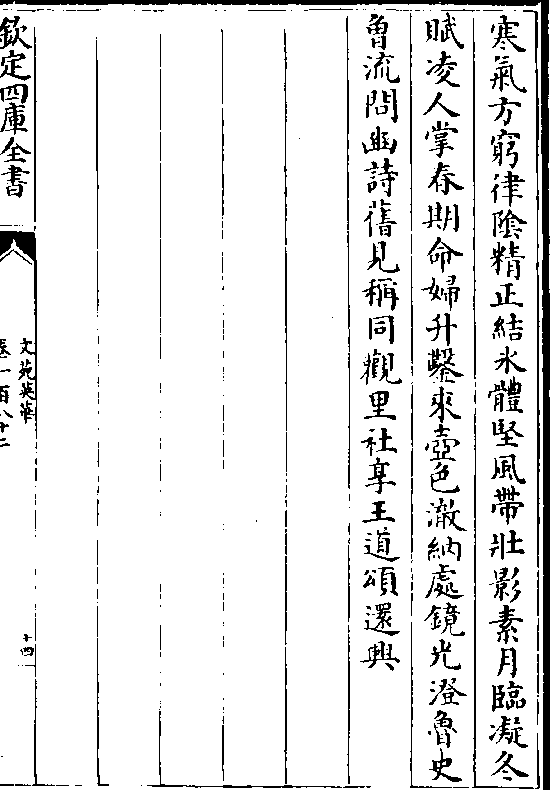 寒氣方窮律隂精正結氷體堅風帶壯影素月臨凝冬
賦凌人掌春期命婦升鑿來壺色澈納處鏡光澄魯史
曾流問幽詩舊見稱同觀里社享王道頌還興
欽定四庫全書
文苑英華
卷一百八十二
十四